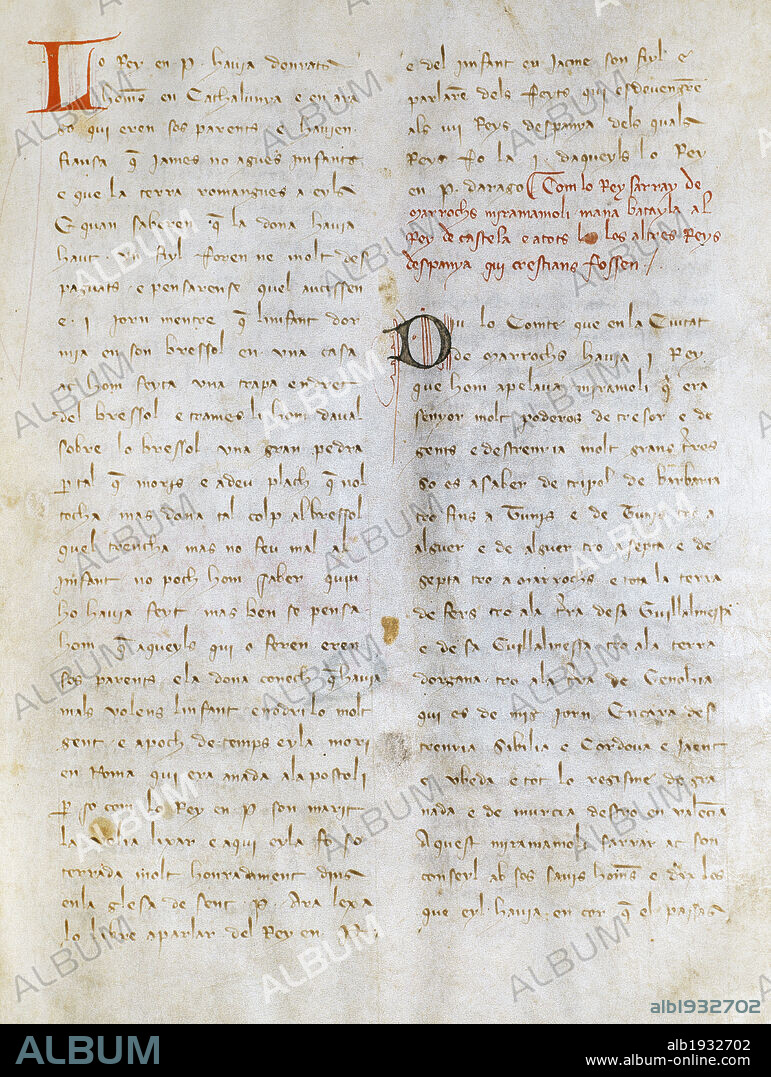 Lo Rey en .P. havia donrats
homēs en Cathalunya e en ara
go qui eren sos parents e havien
fiansa q̄ James no agues infants
e que la terra romangues a eyls
E quan saberen q̄ la dona havia
haut .un fiyl foren ne molt des
pagats e pensarense quel aucissen
e .i. jorn mentre q̄ linfant dor
mia en son bressol en una casa
ac hom feyta una trapa endret
del bressol e trames li hom daval
sobre lo bressol una gran pedra
per tal q̄ moris e a deu plach q̄ nol
tocha mas dona tal colp al bressol
quel trencha mas no feu mal al
infant no poch hom saber quiu
ho havia feyt mas ben se pensa
hom q̄ aqueyls qui o feren eren
sos parents e la dona conech q̄ havia
mals volens linfant e nodri lo molt
gent e a poch de temps eyla mori
en Roma qui era anada al apostoli
per so com lo Rey en .P. son marit
la volia lixar e aqui eyla fo so
terrada molt honradament dins
en la glesa de sent .P. Ara lexa
lo libre a parlar del Rey en .P.
e del infant en Jacme son fiyl e
parlarē dels feyts qui esdevengrē
als .vii. Reys despanya dels quals
Reys fo la .i. daqueyls lo Rey
en .P. darago Com lo Rey sarray de
marrochs miramamoli mana batayla al
Rey de castela e a tots los altres Reys
despanya qui crestians fossen
Diu lo Comte que en la Ciutat
de marrochs havia .i. Rey
que hom apelava miramoli q̄ era
senyor molt poderos de tresor e de
gents e destrenyia molt grans t̄res
so es a saber de tripol de barbaria
tro fins a Tunis e de Tunis tro a
alguer e de alguer tro a septa e de
septa tro a marrochs e tota la terra
de fers tro a la t̄ra de sa Guillalmessa
e de sa Guillalmessa tro a la terra
dorgana tro a la t̄ra de Genohia
qui es de mig jorn Encara des
trenyia Sibilia e Cordova e Jaent
e Ubeda e tot lo regisme de gra
nada e de murcia destro en valēcia
Aquest miramamoli sarray ac son
conseyl ab sos savis homēs e
que eyl havia en cor q̄ el passas
ALBUM
alb1932702
alb1932702
www.album-online.com